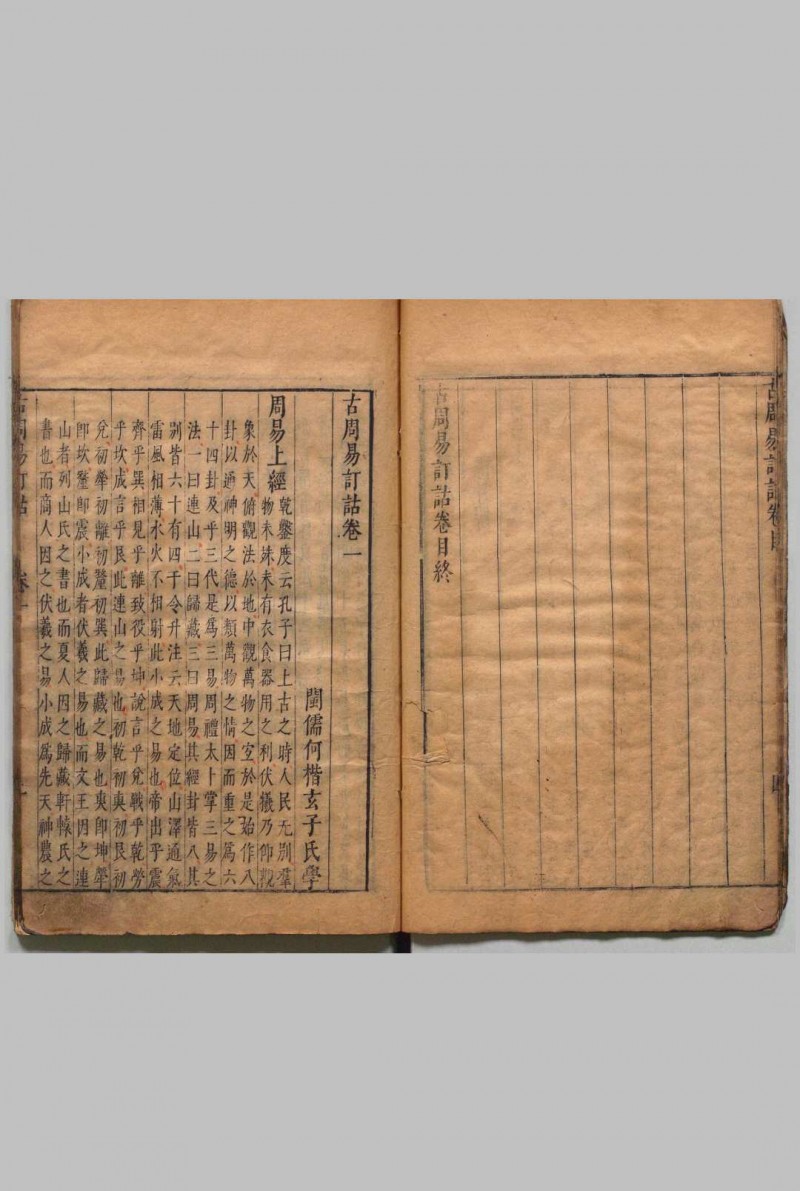 古周易訂詁卷目
古周易訂詁卷目終
古周易訂詁卷一
閩儒何楷玄子氏學
周易上經
乾鑿度云孔子曰上古之時人民无別羣
物未殊未有衣食器用之利伏羲乃仰觀
象於天俯觀法於地中觀萬物之宜於是始作八
卦以通神明之德以類萬物之情因而重之爲六
十四卦及乎三代是爲三易周禮太卜掌三易之
法一曰連山二曰歸藏三曰周易其經卦皆八其
別皆六十有四干令升注云天地定位山澤通氣
雷風相薄水火不相射此小成之易也帝出乎震
齊乎巽相見乎離致役乎坤說言乎兌戰乎乾勞
乎坎成言乎艮此連山之易也初乾初奭初艮初
兌初犖初離初釐初巽此歸藏之易也奭即坤犖
即坎釐即震小成者伏羲之易也而文王因之連
山者列山氏之書也而夏人因之歸藏軒轅氏之
書也而商人因之伏羲之易小成爲先天神農之
古周易訂詁 卷一